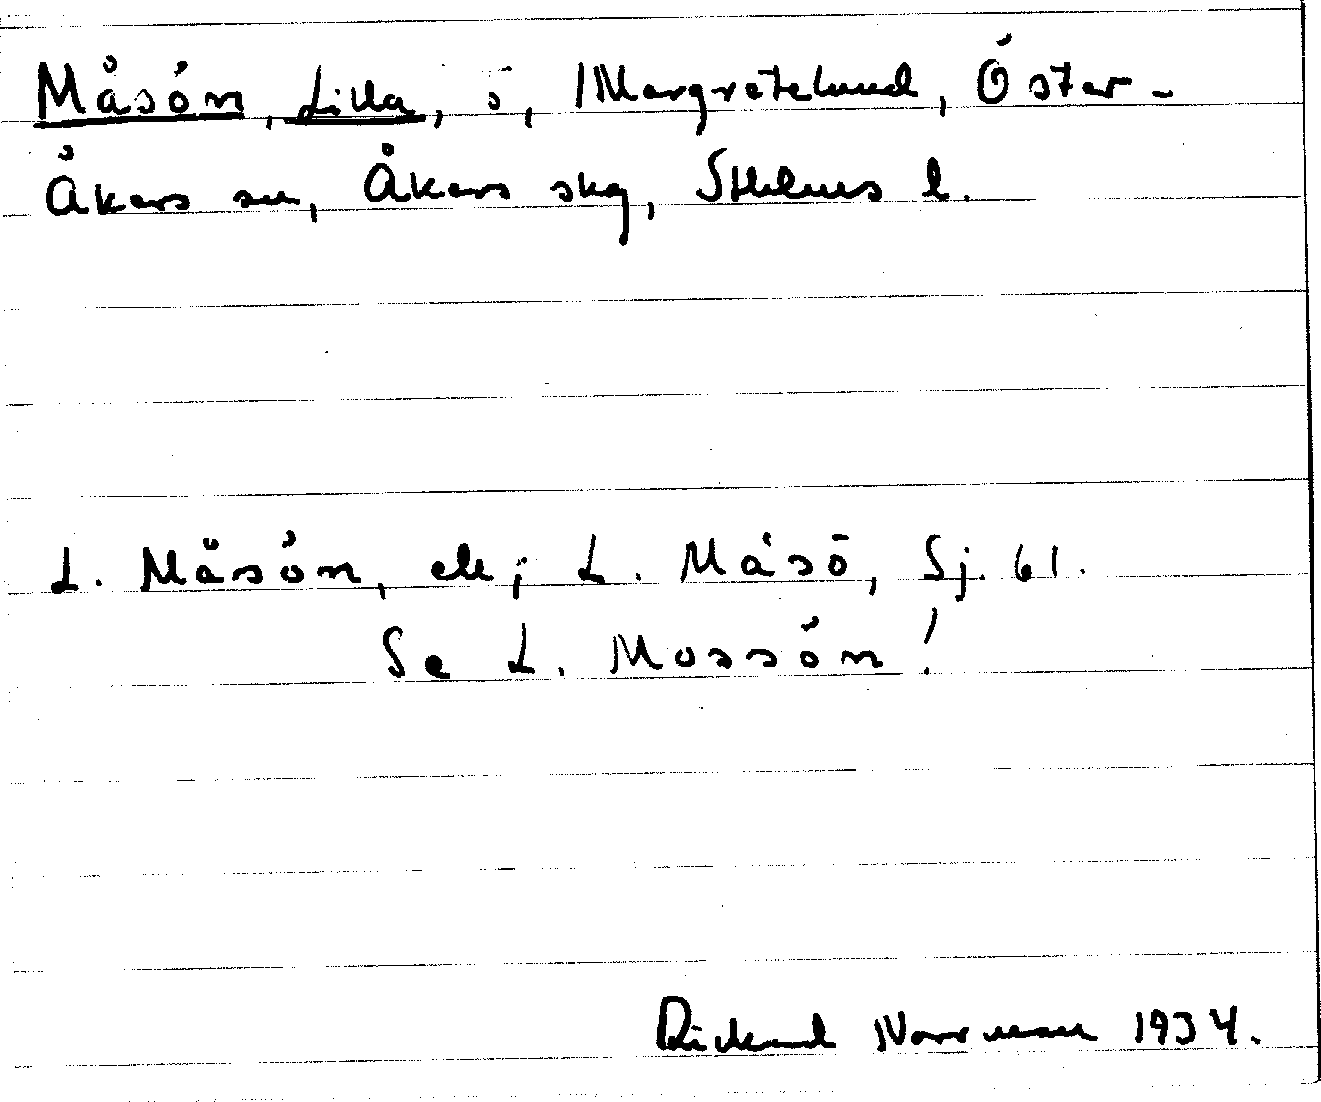 Måsön, Lilla, ö, Margretelund, Öster-
Åkers sn, Åkers skg, Sthlms l.
L. Måsön, ek; L. Måsö, Sj. 61.
Se L. Mossön!
Rickard Norrman 1934.